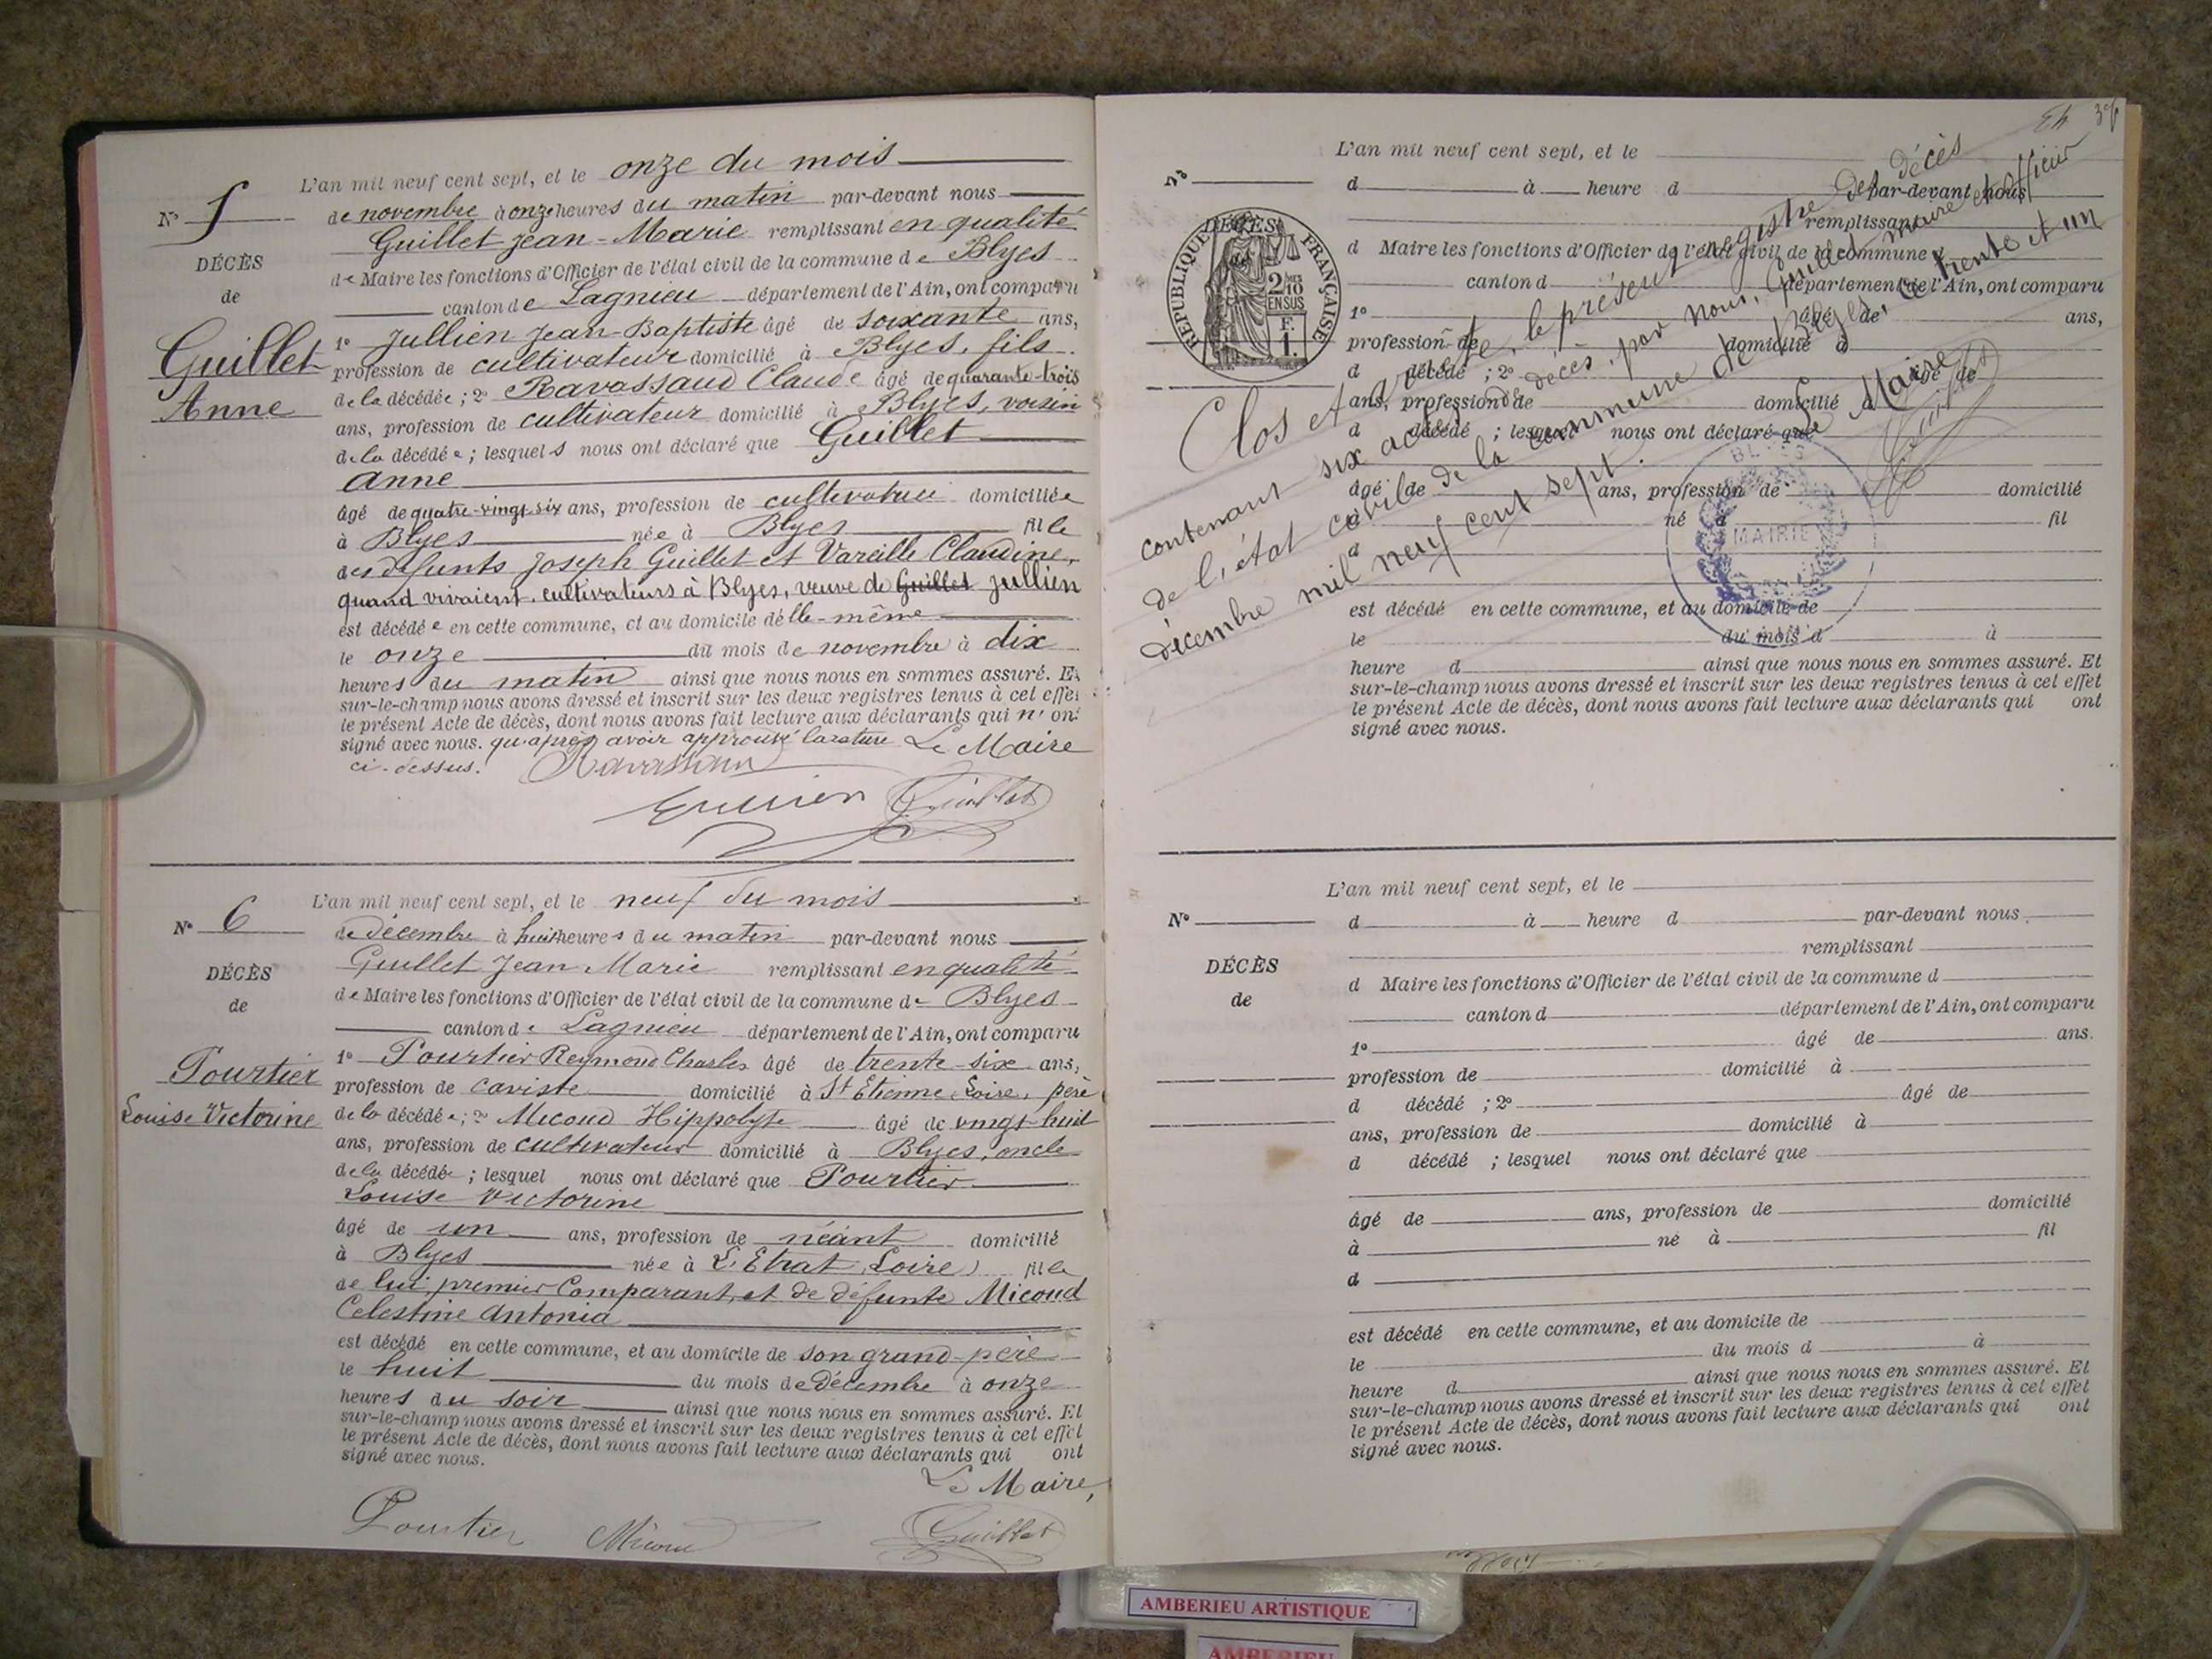 L'an mil neuf cent sept, et le onze du mois
N° 5
de novembre à onze heures du matin par-devant nous
Guillet Jean-Marie remplissant en qualité
DÉCÈS
de Maire les fonctions d'Officier de l'état civil de la commune de Blyes
de
canton de Lagnieu département de l'Ain, ont comparu
1° Jullien Jean-Baptiste âgé de soixante ans,
Guillet
profession de cultivateur domicilié à Blyes, fils
Anne
de la décédée ; 2° Ravassaud Claude âgé de quarante-trois
ans, profession de cultivateur domicilié à Blyes, voisin
de la décédée ; lesquels nous ont déclaré que Guillet
Anne
âgé de quatre-vingt six ans, profession de cultivatrice domiciliée
à Blyes née à Blyes fille
des défunts Joseph Guillet et Vareille Claudine,
quand vivaient cultivateurs à Blyes, veuve de Guillet Jullien
est décédée en cette commune, et au domicile d'elle-même
le onze du mois de novembre à dix
heures du matin ainsi que nous nous en sommes assuré. Et
sur-le-champ nous avons dressé et inscrit sur les deux registres tenus à cet effet
le présent Acte de décès, dont nous avons fait lecture aux déclarants qui n'ont
signé avec nous. qu'après avoir approuvé la rature Le Maire
ci-dessus. Ravassaud
Jullien Guillet
L'an mil neuf cent sept, et le neuf du mois
N° 6
de décembre à huit heures du matin par-devant nous
Guillet Jean Marie remplissant en qualité
DÉCÈS
de Maire les fonctions d'Officier de l'état civil de la commune de Blyes
de
canton de Lagnieu département de l'Ain, ont comparu
1° Pourtier Reymond Charles âgé de trente-six ans,
Pourtier
profession de caviste domicilié à St Etienne Loire, père
Louise Victorine
de la décédée ; 2° Micoud Hippolyte âgé de vingt-huit
ans, profession de cultivateur domicilié à Blyes, oncle
de la décédée ; lesquel nous ont déclaré que Pourtier
Louise Victorine
âgé de un ans, profession de néant domicilié
à Blyes née à L'Etrat (Loire) fille
de lui premier Comparant, et de défunte Micoud
Celestine Antonia
est décédé en cette commune, et au domicile de son grand-père
le huit du mois de décembre à onze
heures du soir ainsi que nous nous en sommes assuré. Et
sur-le-champ nous avons dressé et inscrit sur les deux registres tenus à cet effet
le présent Acte de décès, dont nous avons fait lecture aux déclarants qui ont
signé avec nous.
Le Maire,
Pourtier Micoud Guillet
L'an mil neuf cent sept, et le
N°
d à heure d par-devant nous
remplissant
DÉCÈS
RÉPUBLIQUE FRANÇAISE
2/10 EN SUS
F. 1.
d Maire les fonctions d'Officier de l'état civil de la commune d
canton d département de l'Ain, ont comparu
1° âgé de ans,
profession de domicilié à
d décédé ; 2° âgé de
ans, profession de domicilié à
d décédé ; lesquel nous ont déclaré que
âgé de ans, profession de domicilié
à né à fil
d
est décédé en cette commune, et au domicile de
le du mois d à
heure d ainsi que nous nous en sommes assuré. Et
sur-le-champ nous avons dressé et inscrit sur les deux registres tenus à cet effet
le présent Acte de décès, dont nous avons fait lecture aux déclarants qui ont
signé avec nous.
Clos et arrêté, le présent registre des décès
contenant six actes de décès, par nous, Guillet, maire et officier
de l'état civil de la commune de Blyes, ce trente et un
décembre mil neuf cent sept.
Le Maire
Guillet
BLYES
MAIRIE
L'an mil neuf cent sept, et le
N°
d à heure d par-devant nous
remplissant
DÉCÈS
d Maire les fonctions d'Officier de l'état civil de la commune d
de
canton d département de l'Ain, ont comparu
1° âgé de ans.
profession de domicilié à
d décédé ; 2° âgé de
ans, profession de domicilié à
d décédé ; lesquel nous ont déclaré que
âgé de ans, profession de domicilié
à né à fil
d
est décédé en cette commune, et au domicile de
le du mois d à
heure d ainsi que nous nous en sommes assuré. Et
sur-le-champ nous avons dressé et inscrit sur les deux registres tenus à cet effet
le présent Acte de décès, dont nous avons fait lecture aux déclarants qui ont
signé avec nous.
AMBERIEU ARTISTIQUE
AMBERIEU